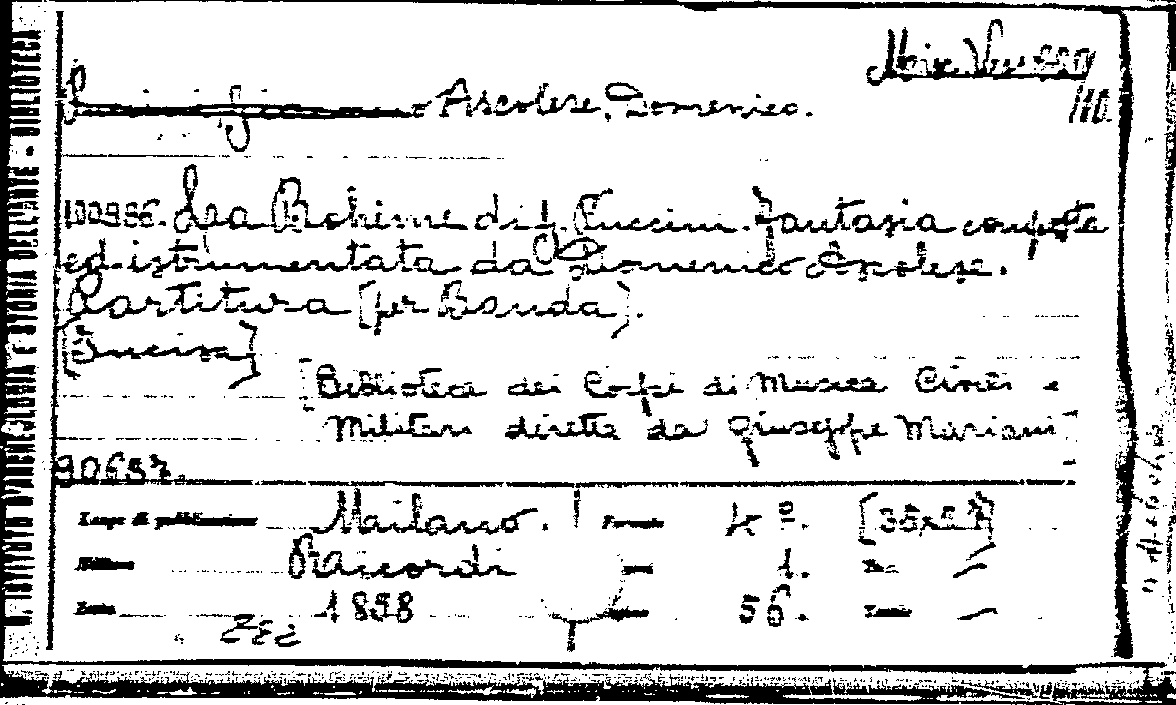 R. ISTITUTO D'ARCHEOLOGIA E STORIA DELL'ARTE - BIBLIOTECA
110.
Ascolese, Domenico.
100986. La Bohème di G. Puccini. Fantasia composta
ed istrumentata da Domenico Ascolese.
Partitura [per Banda].
[Incisa]
[Biblioteca dei Corpi di Musica Civili e
Militari diretta da Giuseppe Mariani
90657.
Luogo di pubblicazione Milano. Formato 4º.
Editore Ricordi 1.
1898 56. Tavole